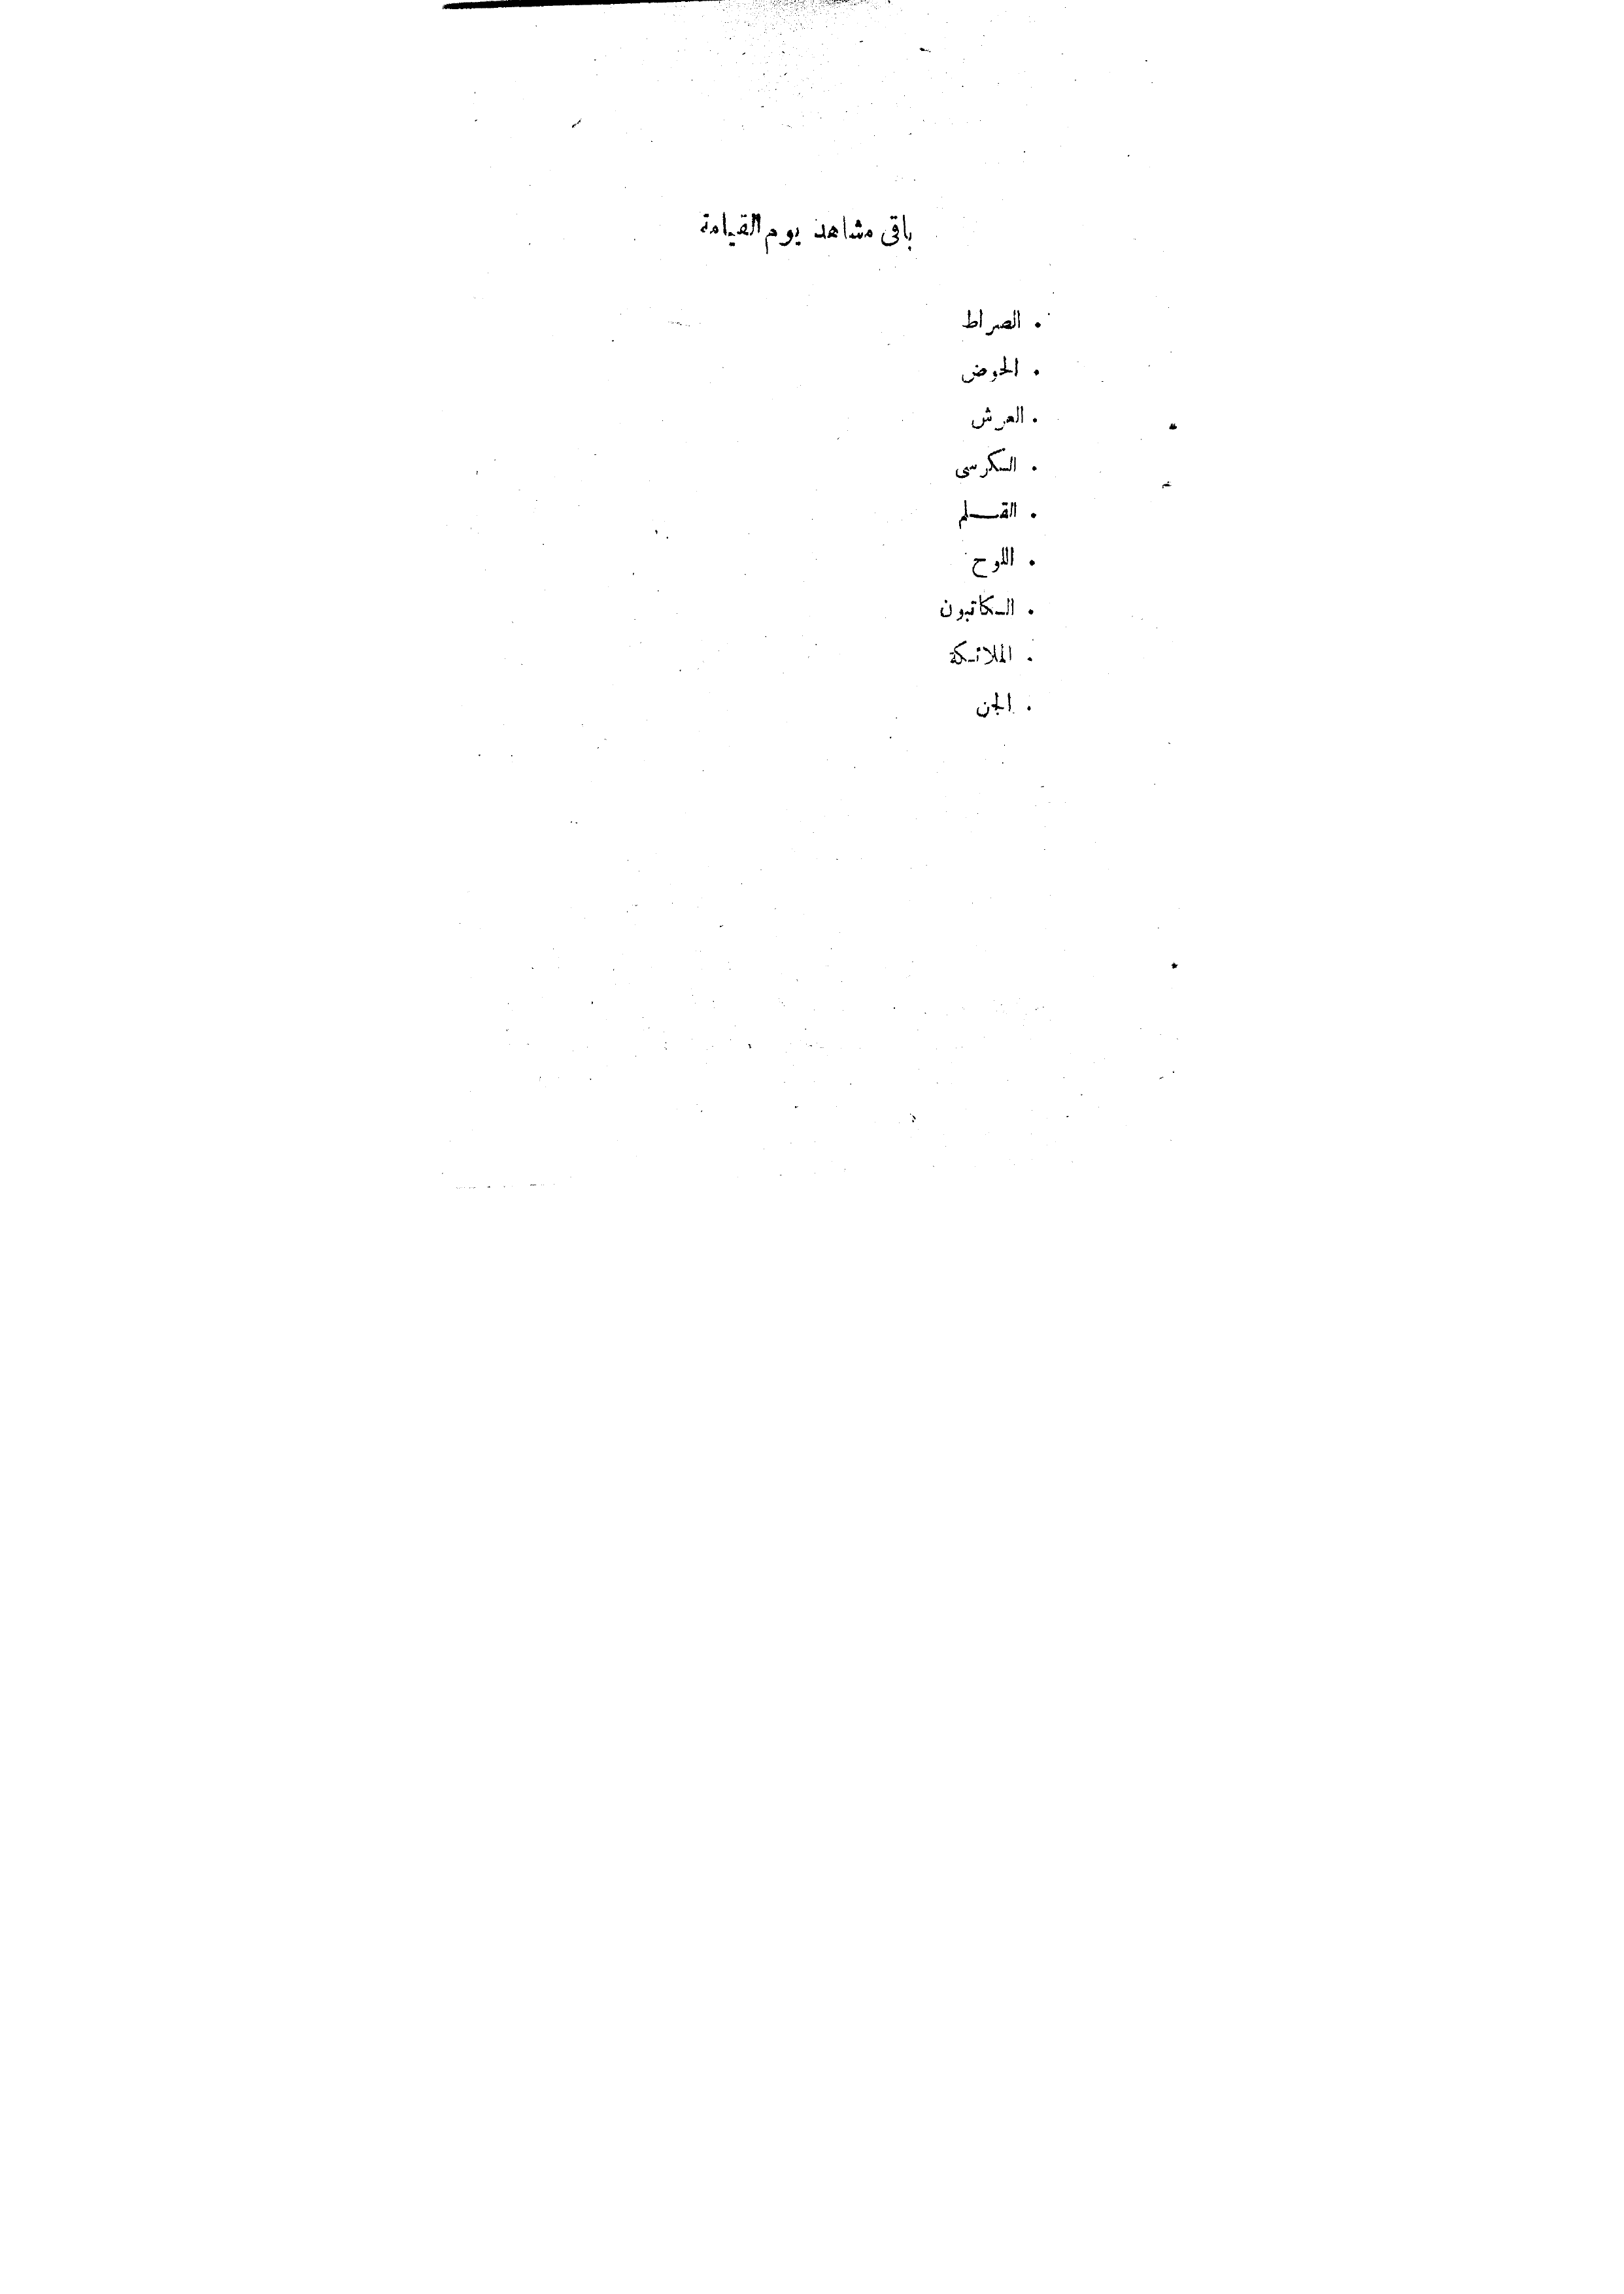 باقى مشاهد يوم القيامة
• الصراط
• الحوض
• العرش
• الكرسى
• القـــلم
• اللوح
• الكاتبون
• الملائكة
• الجن